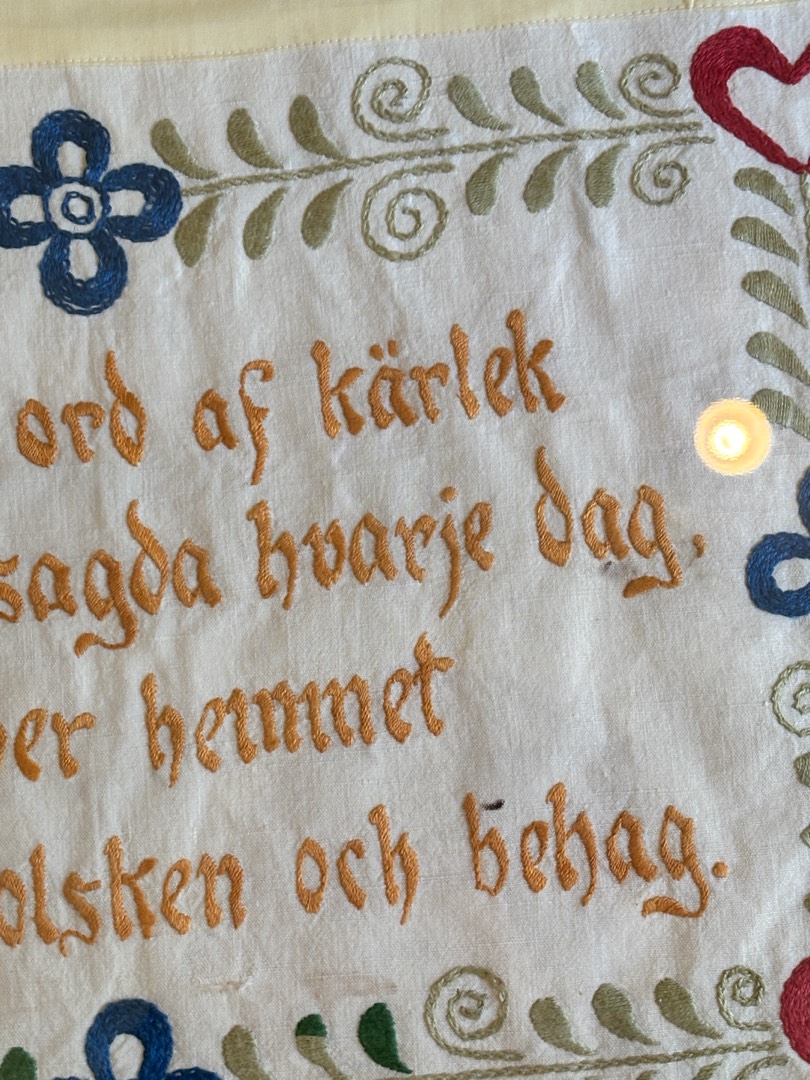 ord af kärlek
sagda hvarje dag.
hemmet
och behag.